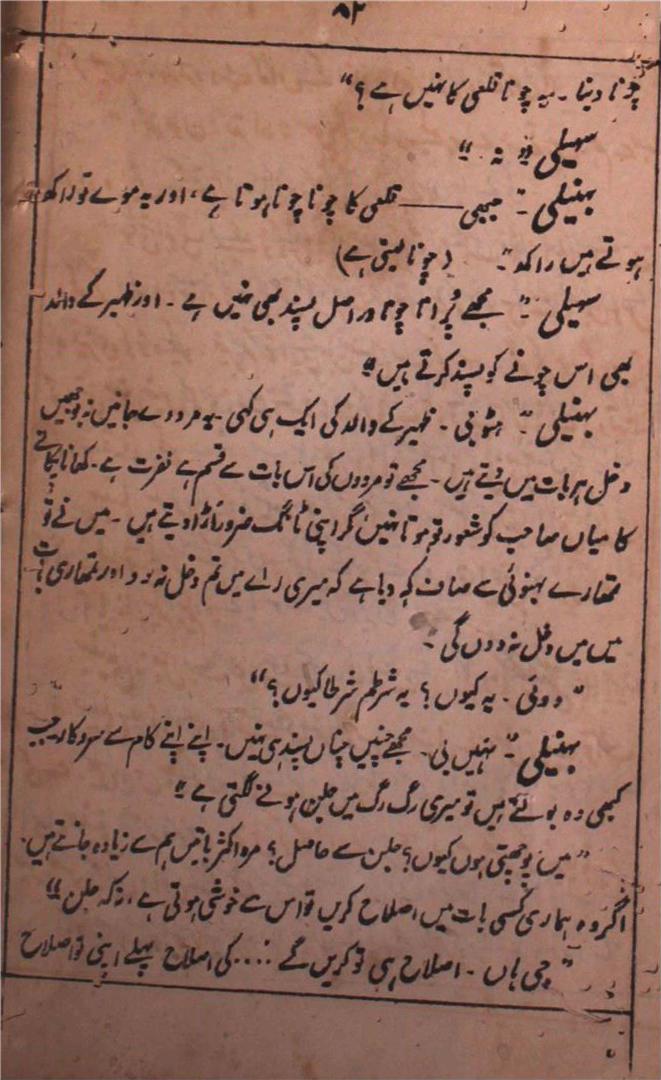 ۸۲
چونا دینا ۔ یہ چونا قلعی کا نہیں ہے؟"
سہیلی "نہ۔"
بہنیلی:" جبھی —— قلعی کا چونا چونا ہوتا ہے، اور یہ موے تو راکھ
ہوتے ہیں راکھ"۔ (چونا لیتی ہے)
سہیلی:" مجھے پُرانا چونا دراصل پسند بھی نہیں ہے ۔ اور ظہیر کے والد
بھی اس چونے کو پسند کرتے ہیں"
بہنیلی:" ہٹو بی ۔ ظہیر کے والد کی ایک ہی کہی ۔ یہ مردوے جانیں نہ بوجھیں
دخل ہر بات میں دیتے ہیں ۔ مجھے تو مردوں کی اس بات سے قسم ہے نفرت ہے ۔ کھانا پکانے
کا میاں صاحب کو شعور تو ہوتا نہیں مگر اپنی ٹانگ ضرور اڑا دیتے ہیں ۔ میں نے تو
تمھارے بہنوئی سے صاف کہہ دیا ہے کہ میری راے میں تم دخل نہ دو اور تمھاری بات
میں میں دخل نہ دوں گی ۔
"دوئی ۔ یہ کیوں؟ یہ شرطم شرطا کیوں؟"
بہنیلی:" نہیں بی ۔ مجھے چنیں چناں پسند ہی نہیں ۔ اپنے اپنے کام سے سروکار جب
کبھی وہ بولے ہیں تو میری رگ رگ میں جلن ہونے لگتی ہے"
"میں پوچھتی ہوں کیوں؟ جلن سے حاصل؟ مرد اکثر باتیں ہم سے زیادہ جانتے ہیں۔
اگر وہ ہماری کسی بات میں اصلاح کریں تو اس سے خوشی ہوتی ہے، نہ کہ جلن"
"جی ہاں ۔ اصلاح ہی تو کریں گے ..... کی اصلاح پہلے اپنی تو اصلاح